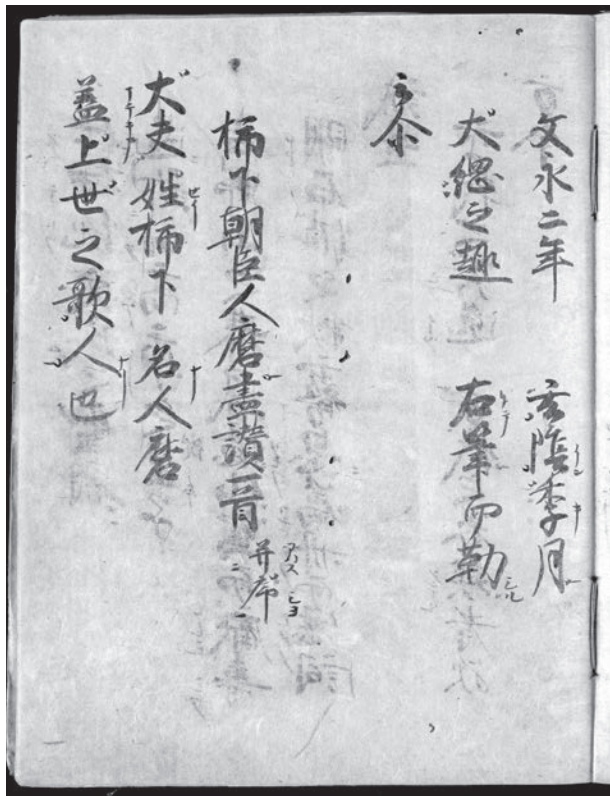 文永二年　玄陰季月
大綱之趣　右筆而勒
云尒
柿下朝臣人麿畫讃一首并序
大夫姓柿下　名人麿
蓋上世之歌人也